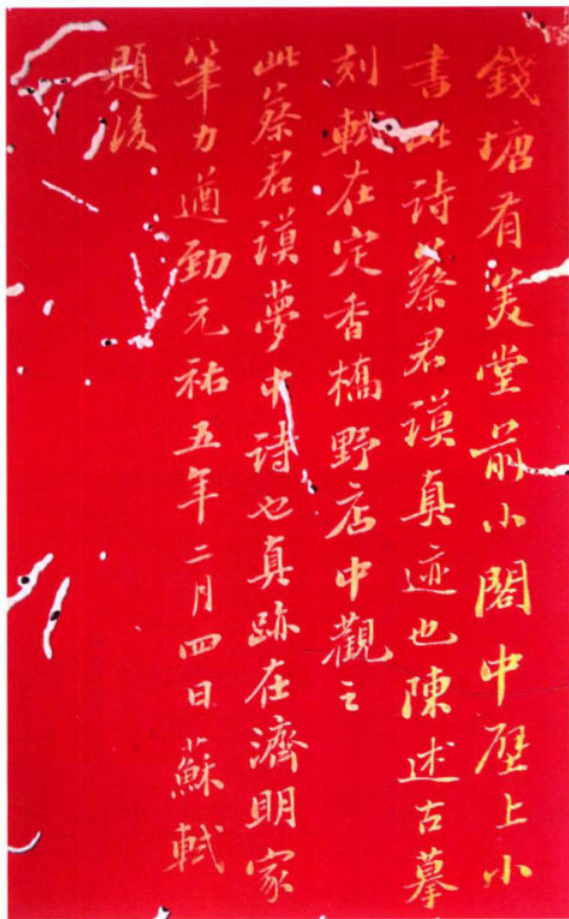 錢塘有美堂前小閣中壁上小
書此詩蔡君謨真迹也陳述古摹
刻軾在定香橋野店中觀之
此蔡君謨夢中詩也真跡在濟明家
筆力遒勁元祐五年二月四日蘇軾
題後